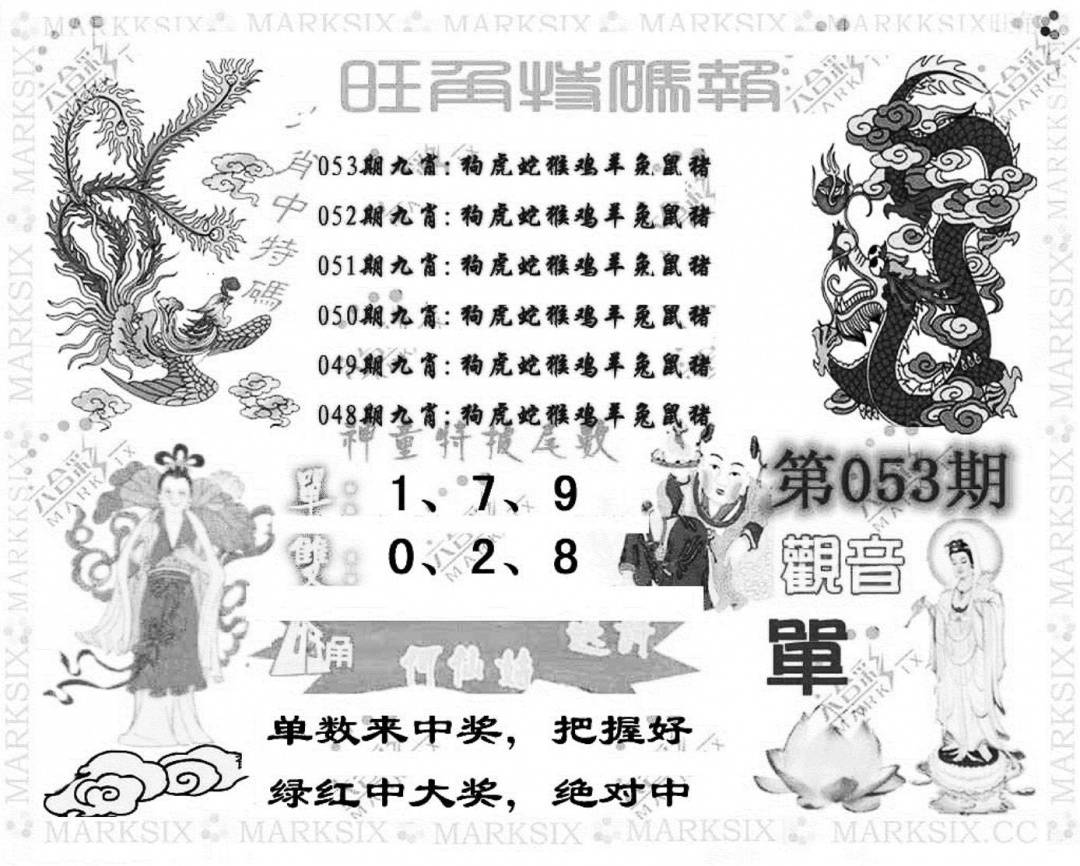 MARKSIX MARKSIX MARKSIX MARKKSIX
旺角特碼報
九肖中特碼
053期九肖:狗虎蛇猴鸡羊兔鼠猪
052期九肖:狗虎蛇猴鸡羊兔鼠猪
051期九肖:狗虎蛇猴鸡羊兔鼠猪
050期九肖:狗虎蛇猴鸡羊兔鼠猪
049期九肖:狗虎蛇猴鸡羊兔鼠猪
048期九肖:狗虎蛇猴鸡羊兔鼠猪
神童特报尾數
第053期
單: 1、7、9
雙: 0、2、8
觀音
單
旺角
何仙姑
单数来中奖，把握好
绿红中大奖，绝对中
MARKSIX MARKSIX MARKSIX MARKSIX MARKSIX.CC